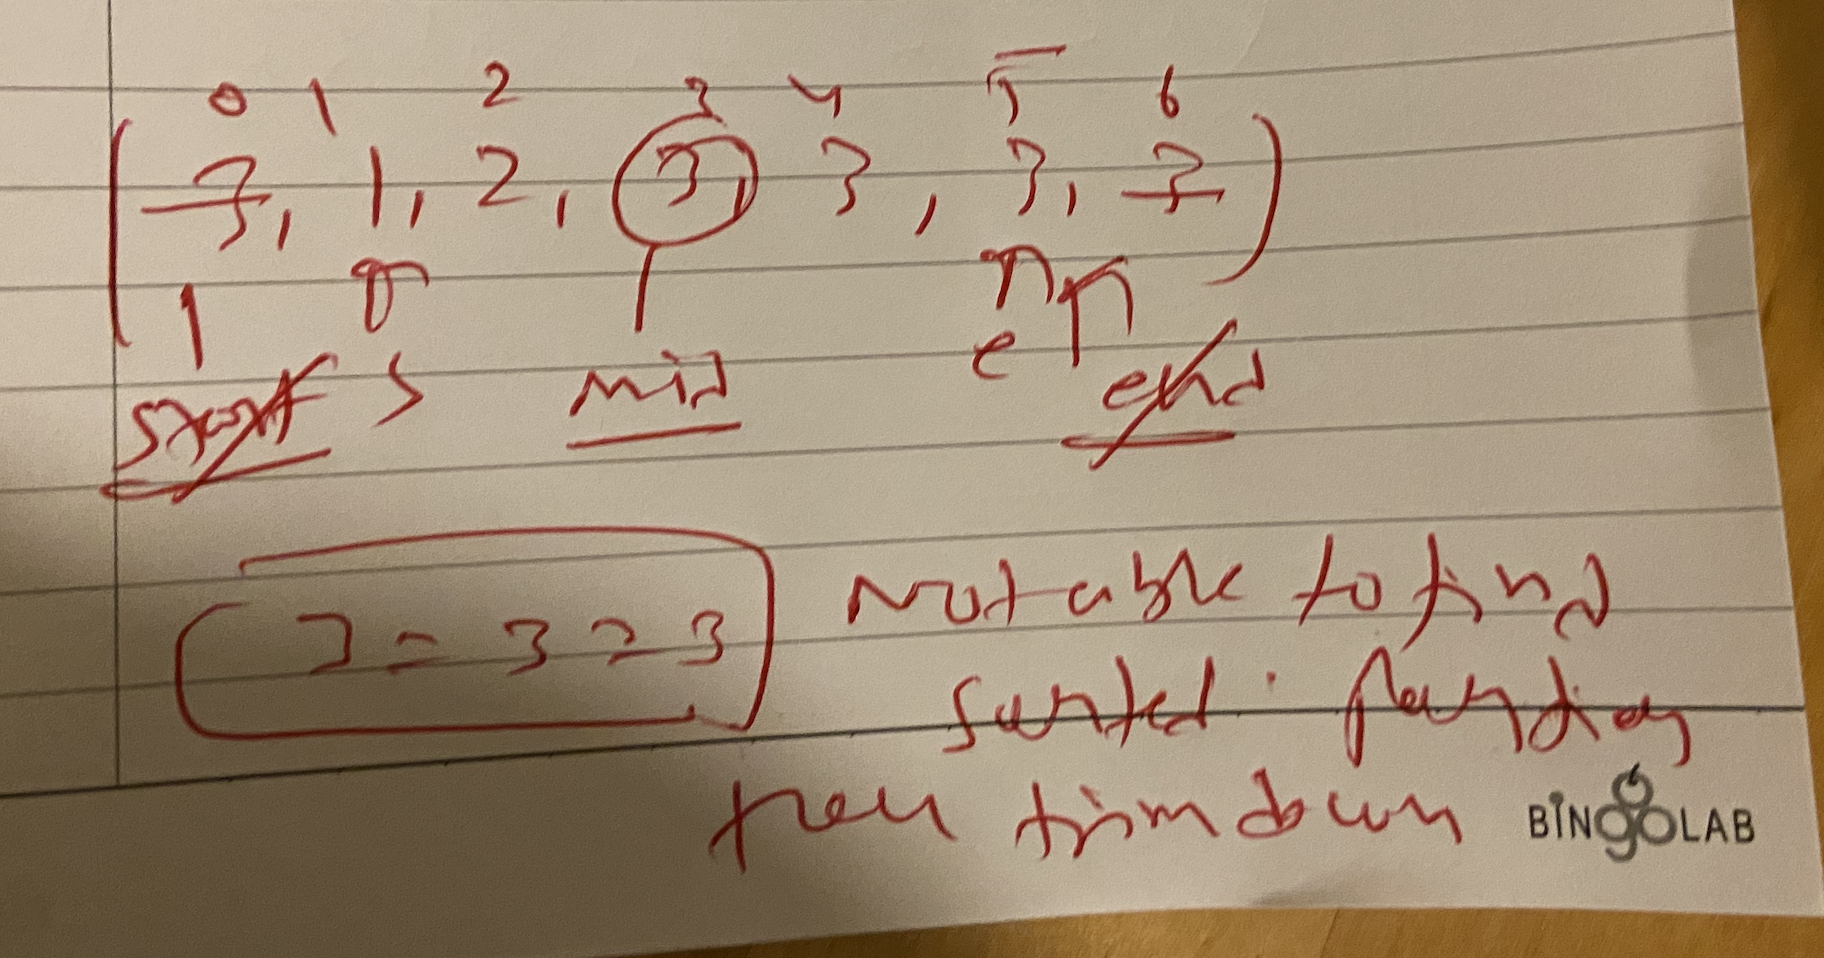 0 1 2 3 4 5 6
3, 1, 2, 3, 3, 3, 3
start s mid e end
3 = 3 = 3
Not able to find
sorted
then trim down
BINGOLAB